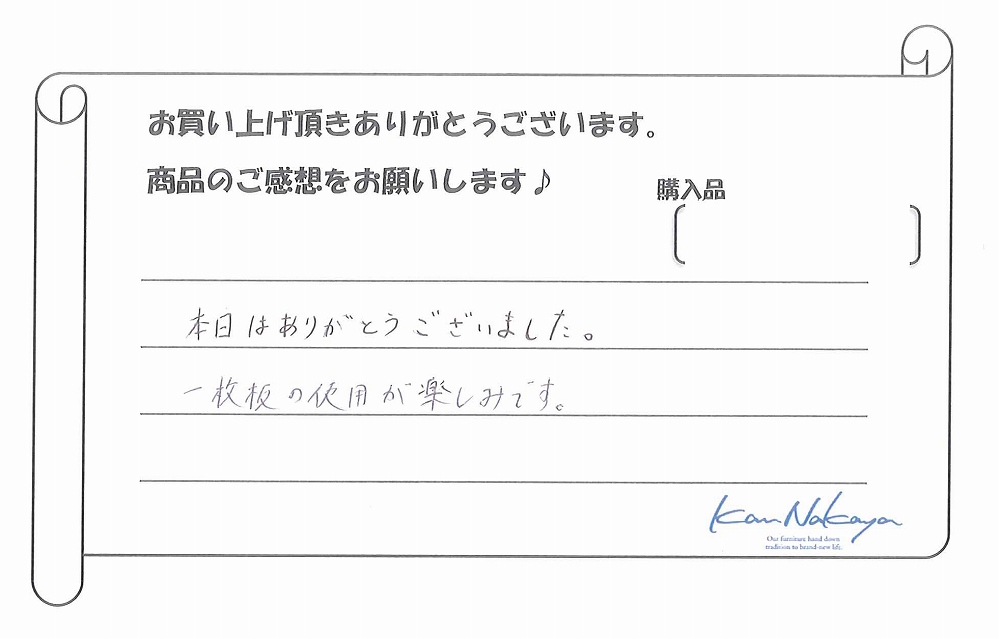 お買い上げ頂きありがとうございます。
商品のご感想をお願いします♪
購入品
本日はありがとうございました。
一枚板の使用が楽しみです。
Kan Nakaya
Our furniture hand down
tradition to brand-new life.